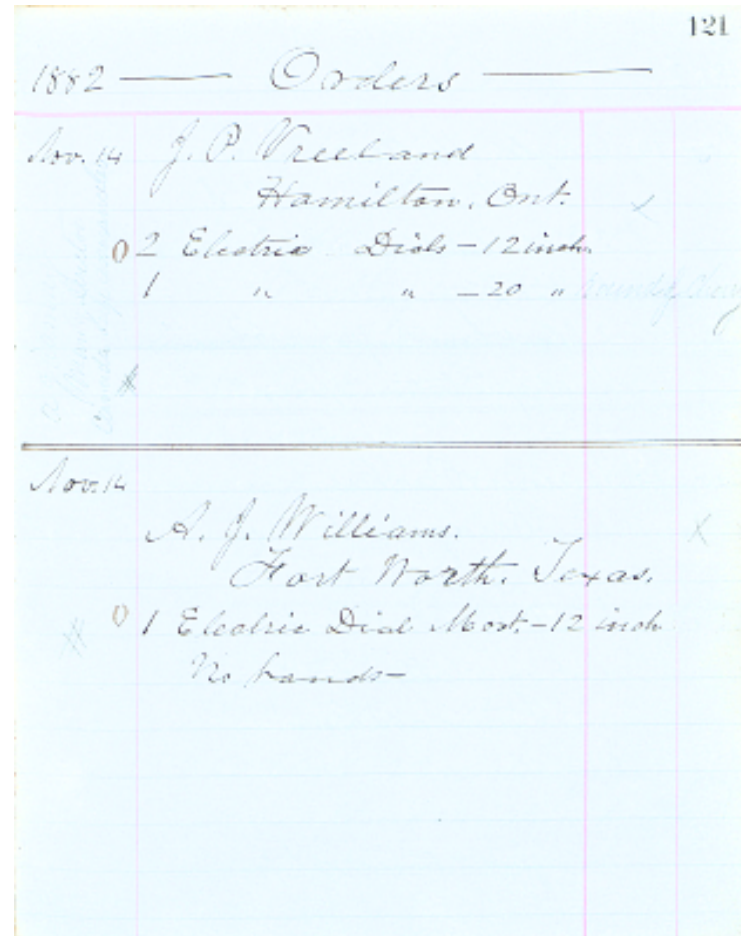 121
1882 — Orders —
Nov. 14 J. P. Vreeland
Hamilton, Ont.
0 2 Electric Dials – 12 inch
1 " " – 20 "
Nov. 14
A. J. Williams.
Fort Worth. Texas.
0 1 Electric Dial Mort. – 12 inch
No hands –